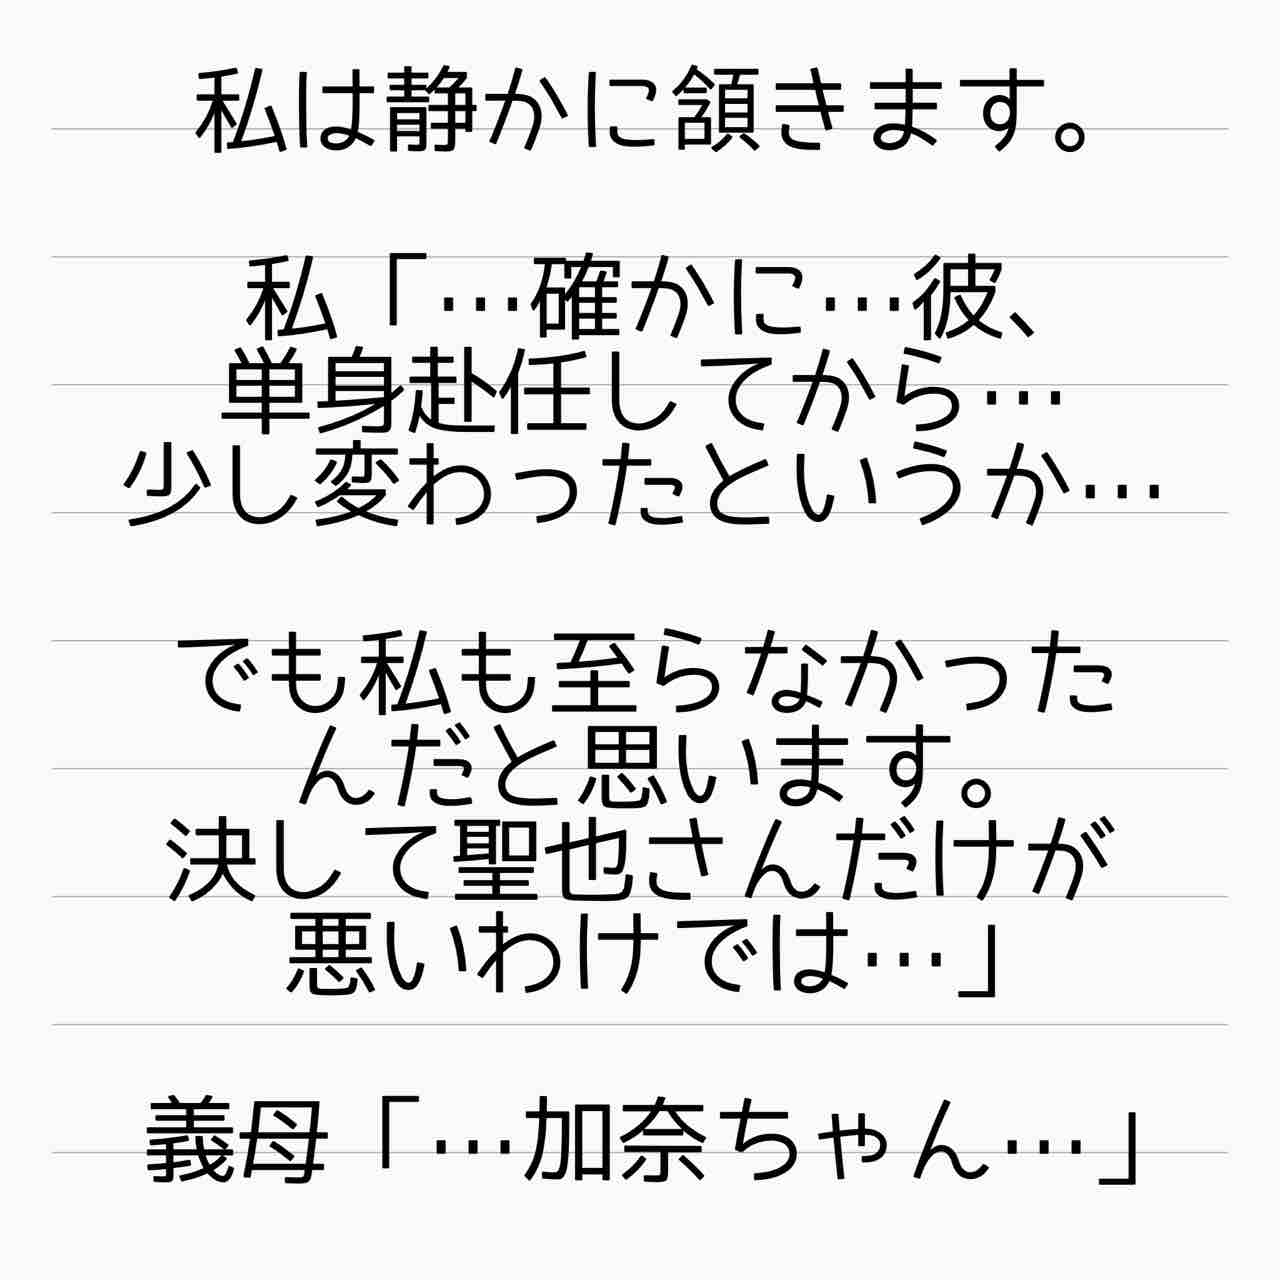 私は静かに頷きます。
私「…確かに…彼、
単身赴任してから…
少し変わったというか…
でも私も至らなかった
んだと思います。
決して聖也さんだけが
悪いわけでは…」
義母「…加奈ちゃん…」